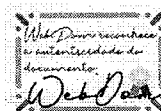 Web Dom reconhece
a autenticidade do
documento.
Web Dom